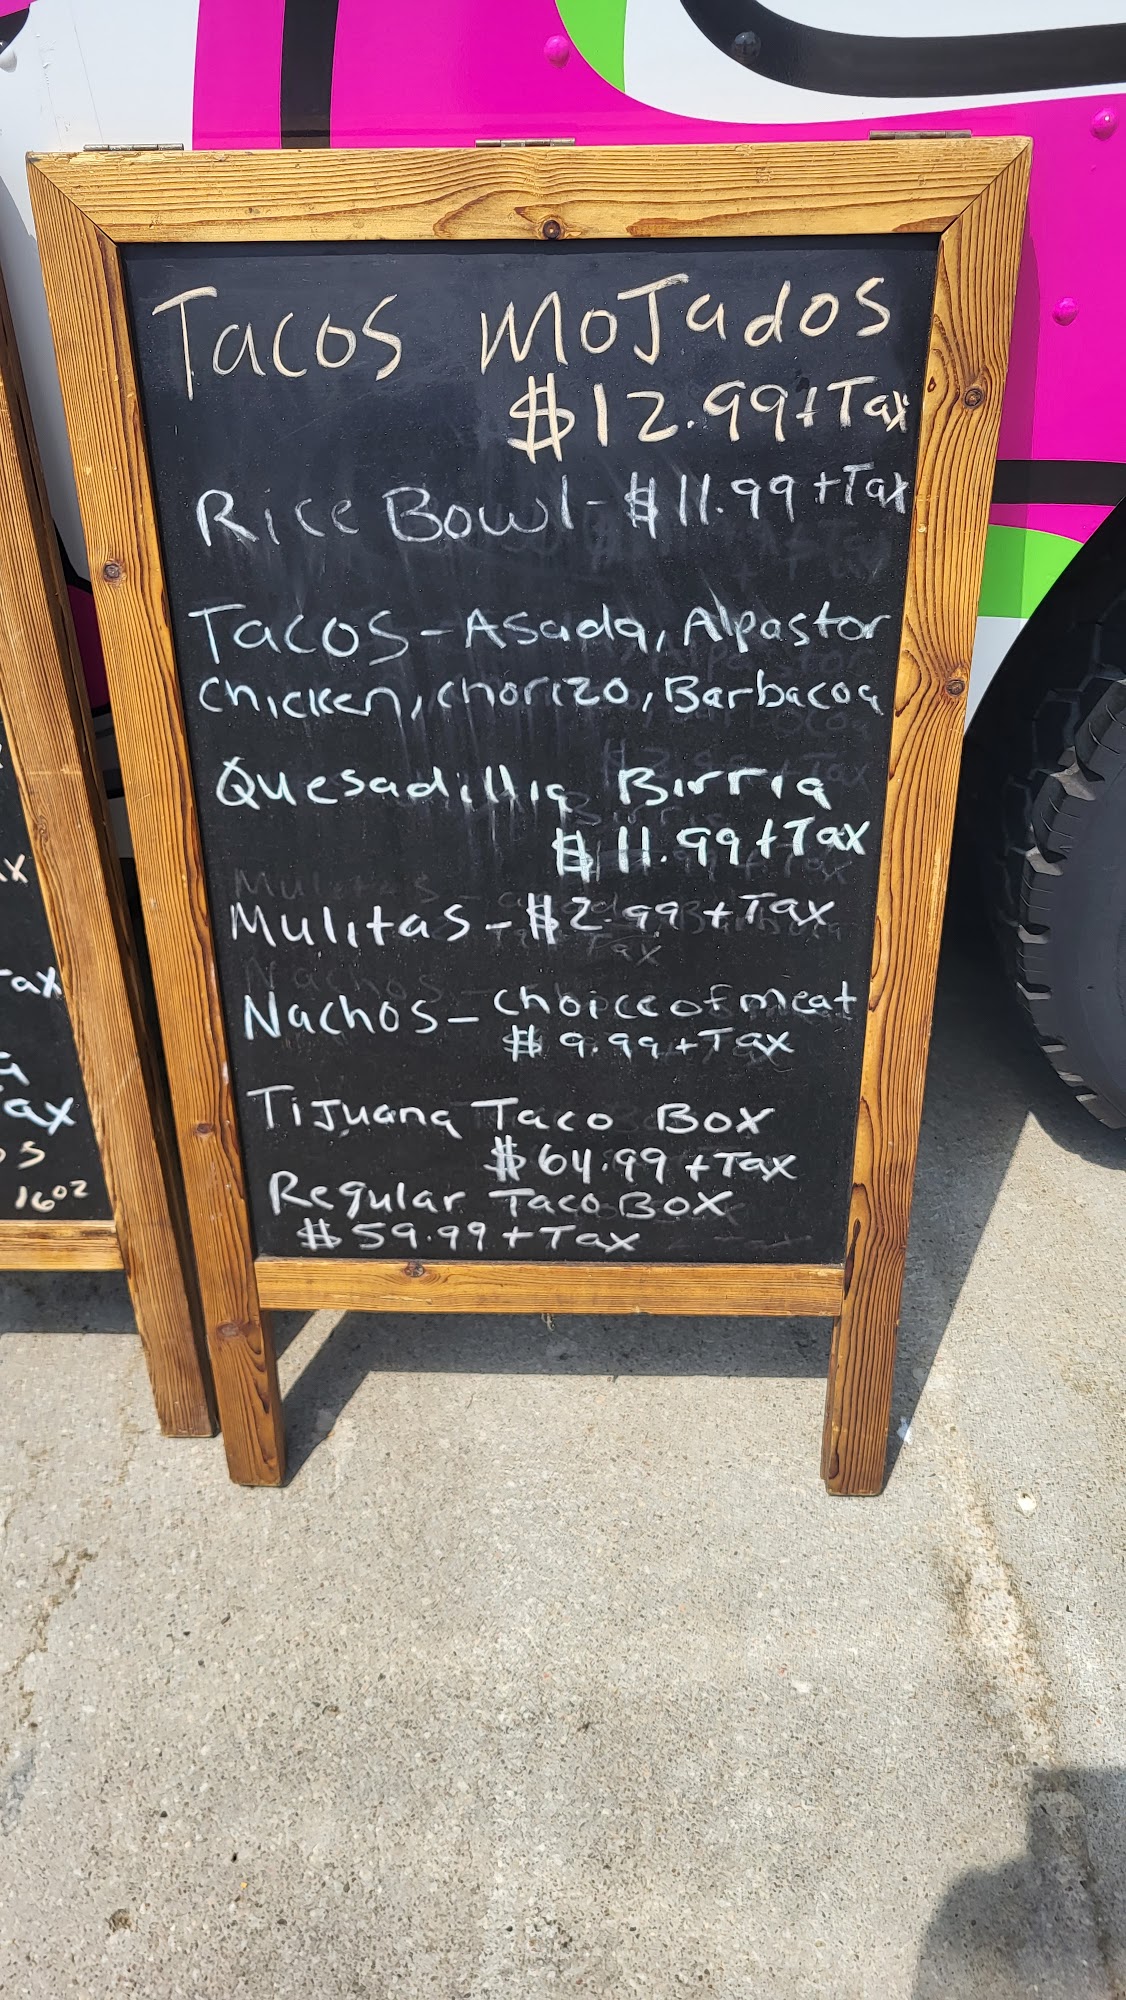 Tacos MoJados
$12.99+Tax
Rice Bowl-$11.99+Tax
Tacos-Asada, Alpastor
chicken, chorizo, Barbacoa
Quesadillia Birria
$11.99+Tax
Mulitas-$2.99+Tax
Nachos-choice of meat
$9.99+Tax
Tijuana Taco Box
$64.99+Tax
Regular Taco Box
$59.99+Tax
ax
16oz